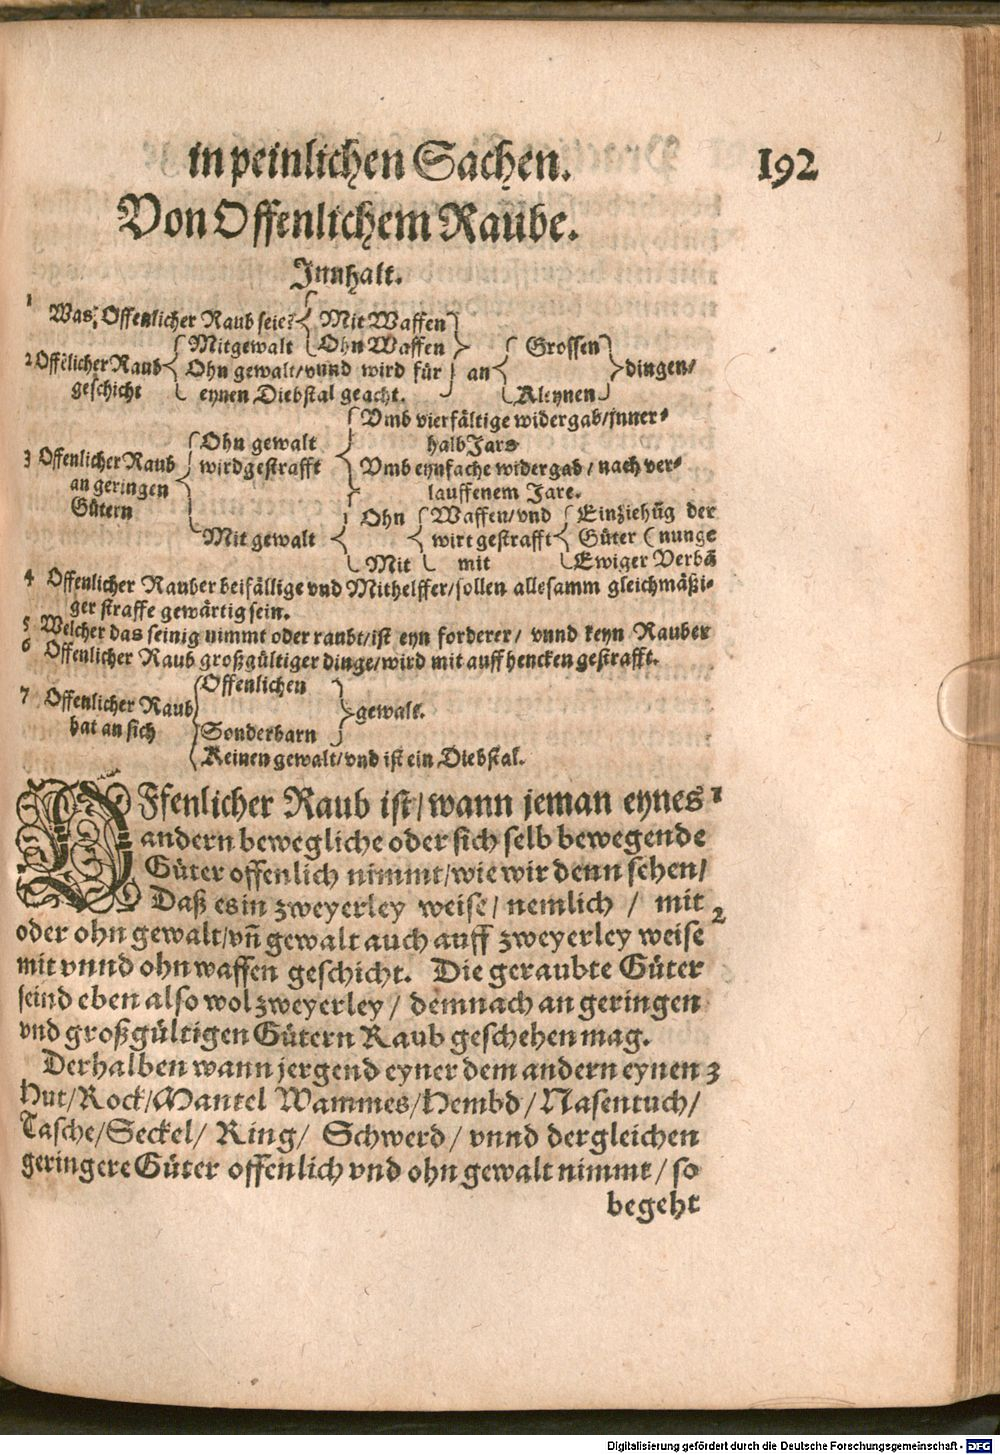 in peinlichen Sachen. 192
Von Offenlichem Raube.
Innhalt.
1 Was Offenlicher Raub seie? { Mit Waffen
Ohn Waffen
2 Offēlicher Raub geschicht { Mit gewalt
Ohn gewalt/vnnd wird für
eynen Diebstal geacht.
} an { Grossen
Kleynen } dingen/
3 Offenlicher Raub
an geringen
Gütern
{ Ohn gewalt
wird gestrafft
{ Vmb vierfältige widergab/jnner-
halb Jars
Vmb eynfache widergab/ nach ver-
lauffenem Jare.
Mit gewalt { Ohn
Mit
{ Waffen/vnd
wirt gestrafft
mit
{ Einziehūg der
Güter (nunge
Ewiger Verbā
4 Offenlicher Rauber beifällige vnd Mithelffer/sollen allesamm gleichmäßi-
ger straffe gewärtig sein.
5 Welcher das seinig nimmt oder raubt/ist eyn forderer/ vnnd keyn Rauber
6 Offenlicher Raub großgültiger dinge/wird mit auffhencken gestrafft.
7 Offenlicher Raub
hat an sich
{ Offenlichen
Sonderbarn } gewalt.
Keinen gewalt/vnd ist ein Diebstal.
OFfenlicher Raub ist/wann jeman eynes 1
andern bewegliche oder sich selb bewegende
Güter offenlich nimmt/wie wir denn sehen/
Daß es in zweyerley weise/ nemlich / mit 2
oder ohn gewalt/vñ gewalt auch auff zweyerley weise
mit vnnd ohn waffen geschicht. Die geraubte Güter
seind eben also wol zweyerley / demnach an geringen
vnd großgültigen Gütern Raub geschehen mag.
Derhalben wann jergend eyner dem andern eynen 3
Hut/Rock/Mantel Wammes/Hembd/Nasentuch/
Tasche/Seckel/ Ring/ Schwerd/ vnnd dergleichen
geringere Güter offenlich vnd ohn gewalt nimmt/ so
begeht
Digitalisierung gefördert durch die Deutsche Forschungsgemeinschaft - DFG